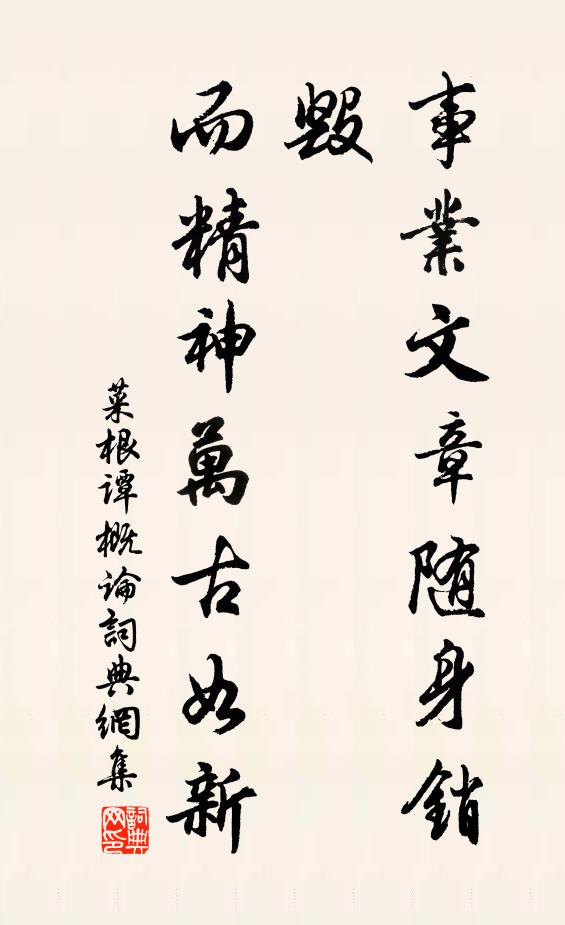 事業文章随身銷
毀
而精神萬古如新
菜根譚概論詞典網集
詞典网印